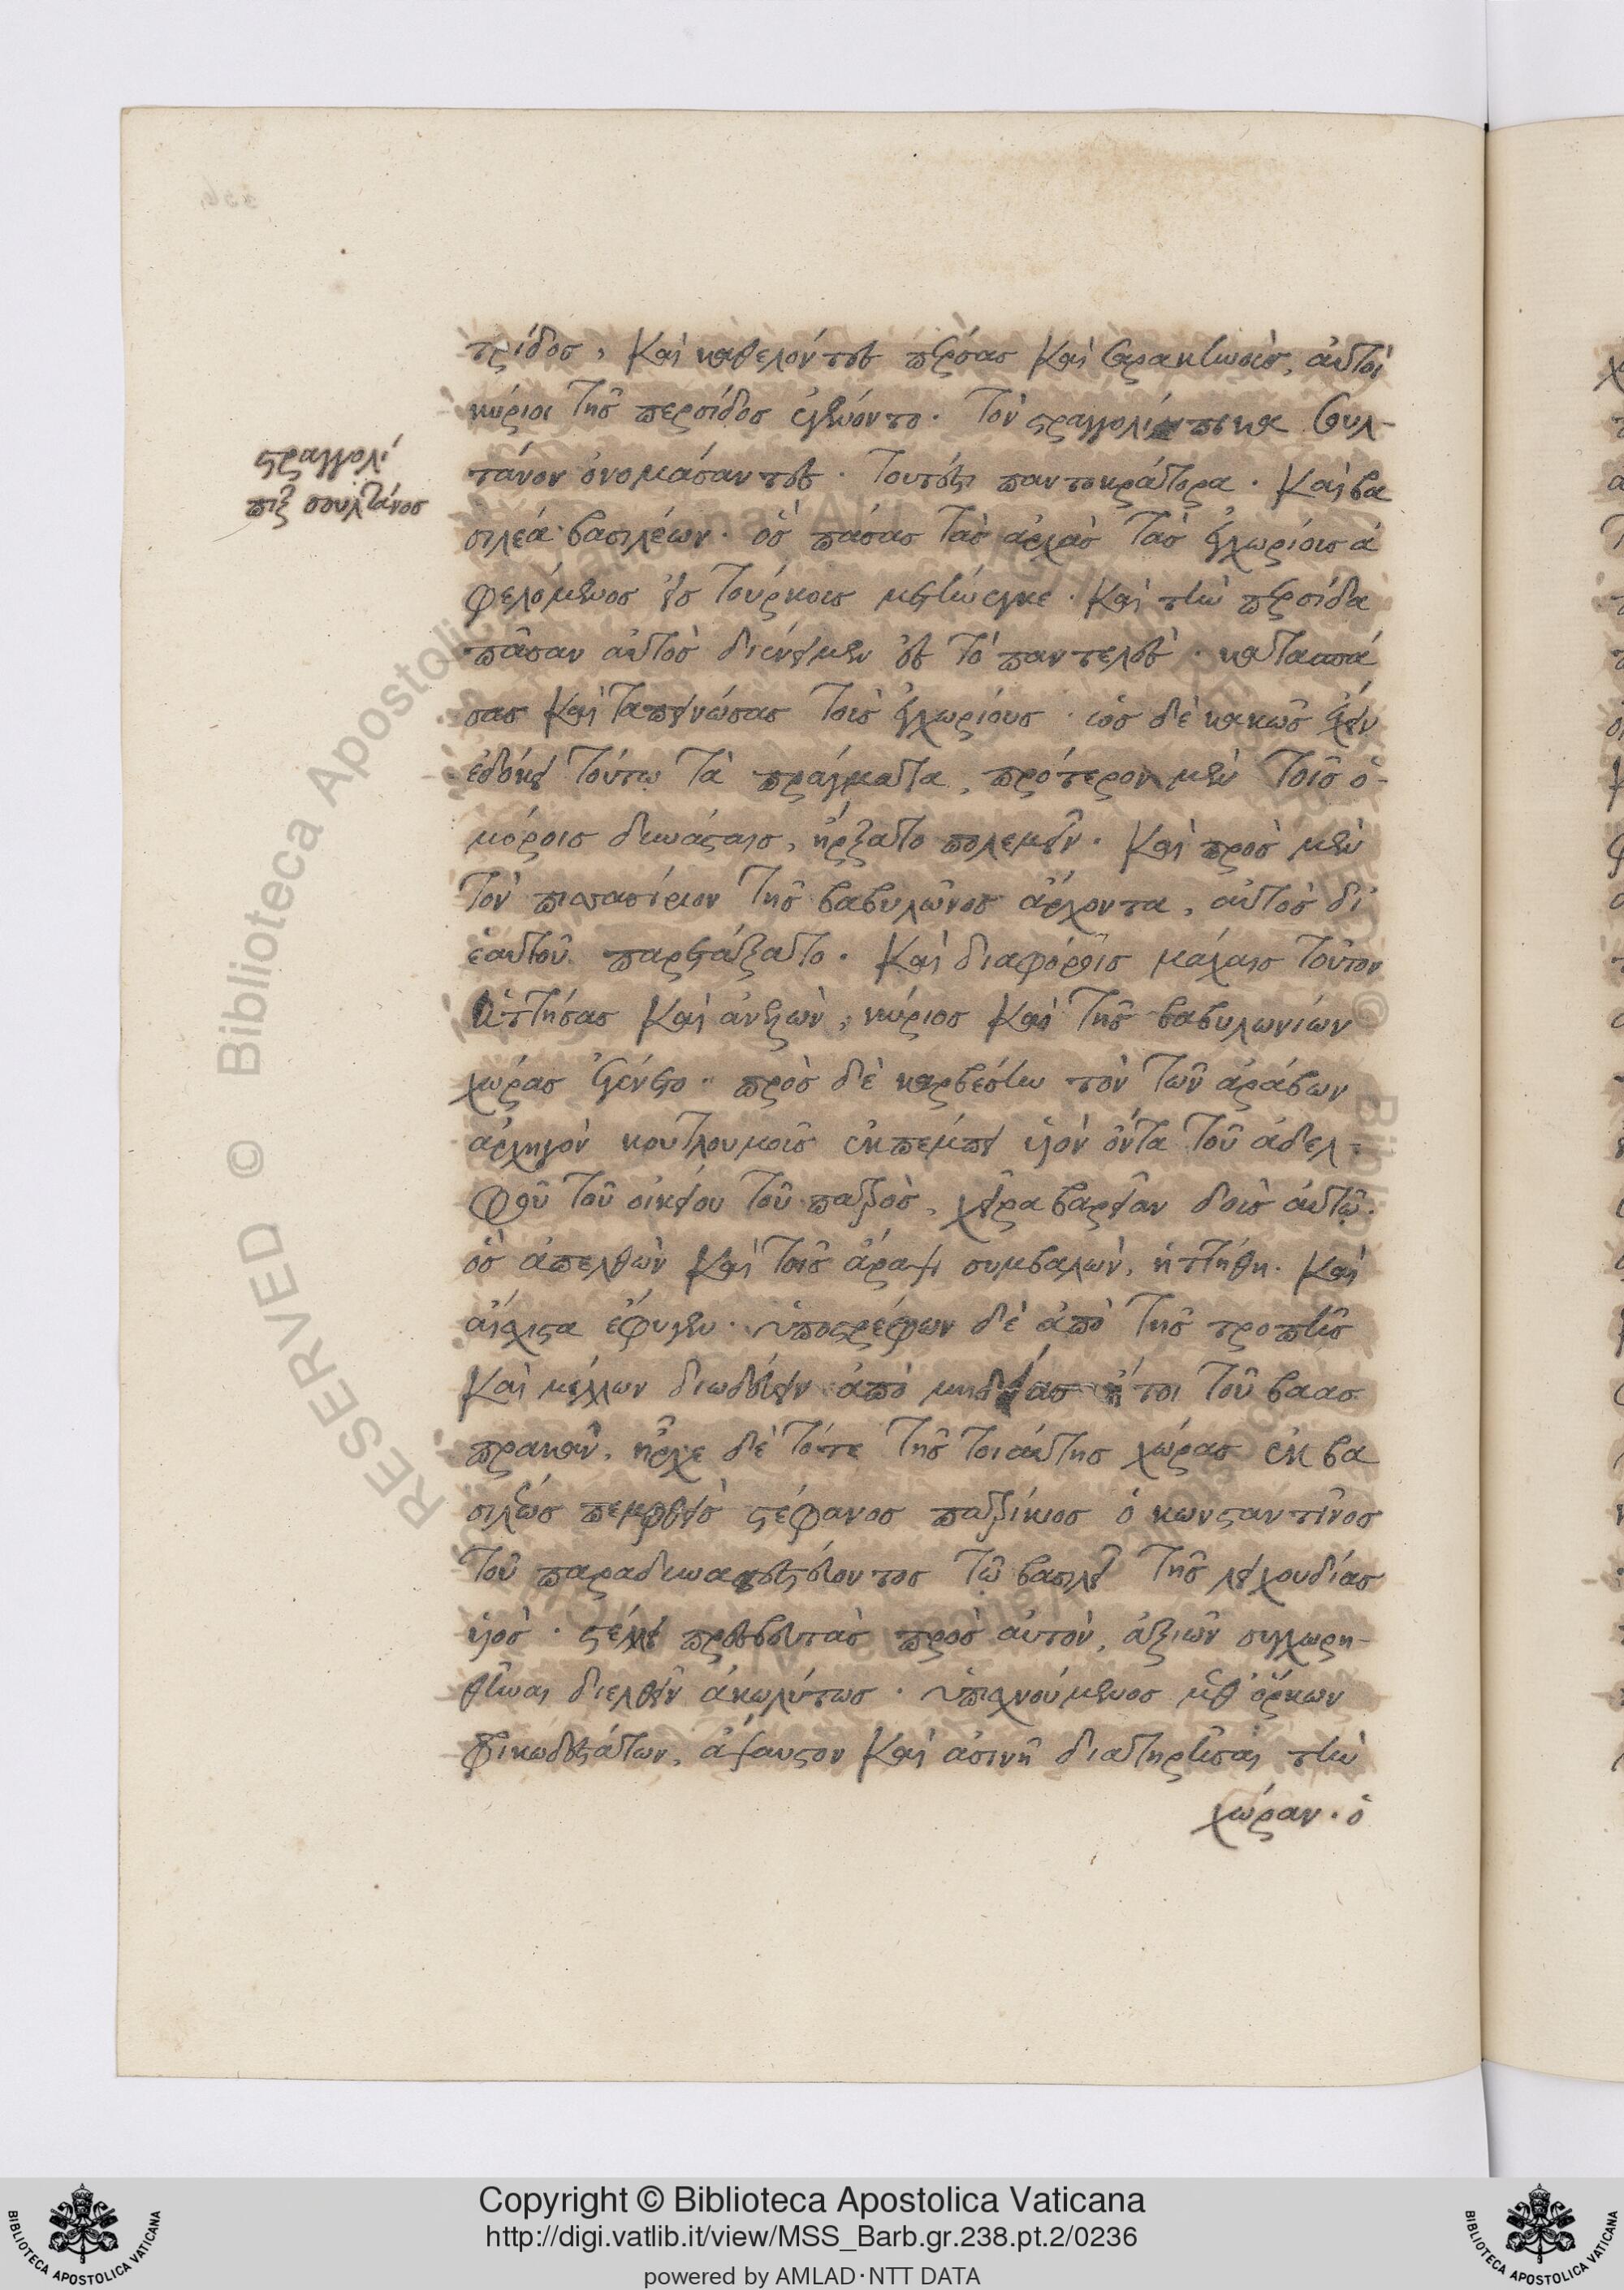 τρίδος, καὶ καθελόντες πέρσας καὶ σαρακηνοὺς, αὐτοὶ
κύριοι τῆς περσίδος ἐγένοντο. τὸν στραγγολίπηκα σουλ-
τάνον ὀνομάσαντες. τουτέστι παντοκράτορα. καὶ βα
σιλέα βασιλέων. ὃς πάσας τὰς ἀρχὰς τὰς ἐγχωρίοις ἀ
φελόμενος εἰς τούρκους μετήνεγκε. καὶ τὴν περσίδα
πᾶσαν αὐτὸς διένειμεν ἐς τὸ παντελὲς. καταπά
σας καὶ ταπεινώσας τοὺς ἐγχωρίους. ὡς δὲ κακῶς ἔχειν
ἐδόκει τούτῳ τὰ πράγματα, πρότερον μὲν τοῖς ὁ-
μόροις δυνάσταις, ἤρξατο πολεμεῖν. καὶ πρὸς μὲν
τὸν πισσασίριον τῆς βαβυλῶνος ἄρχοντα, αὐτὸς δι
ἑαυτοῦ παρετάξατο. καὶ διαφόροις μάχαις τοῦτον
ἡττήσας καὶ ἀνελὼν, κύριος καὶ τῆς βαβυλωνίων
χώρας ἐγένετο. πρὸς δὲ καρβεσίην τὸν τῶν ἀράβων
ἀρχηγὸν κουτλουμοῦς ἐκπέμπει υἱὸν ὄντα τοῦ ἀδελ-
φοῦ τοῦ οἰκείου τοῦ πατρὸς, χεῖρα βαρεῖαν δοὺς αὐτῷ.
ὃς ἀπελθὼν καὶ τοῖς ἄραψι συμβαλὼν, ἡττήθη. καὶ
αἴσχιστα ἔφυγεν. ὑποστρέφων δὲ ἀπὸ τῆς τροπῆς
καὶ μέλλων διοδεύειν ἀπὸ μηδείας ἤτοι τοῦ βαασ
πρακὰν, ἦρχε δὲ τότε τῆς τοιαύτης χώρας ἐκ βα
σιλέως πεμφθεὶς στέφανος πατρίκιος ὁ κωνσταντῖνος
τοῦ παραδυναστεύοντος τῷ βασιλεῖ τῆς λειχουδίας
υἱὸς. στέλλει πρεσβευτὰς πρὸς αὐτὸν, ἀξιῶν συγχωρη-
θῆναι διελθεῖν ἀκωλύτως. ὑπισχνούμενος μεθ ὅρκων
φρικωδεστάτων, ἄψαυστον καὶ ἀσινῆ διατηρῆσαι τὴν
χώραν. ὁ
στραγγολί
πιξ σουλτάνος
Copyright © Biblioteca Apostolica Vaticana
http://digi.vatlib.it/view/MSS_Barb.gr.238.pt.2/0236
powered by AMLAD·NTT DATA